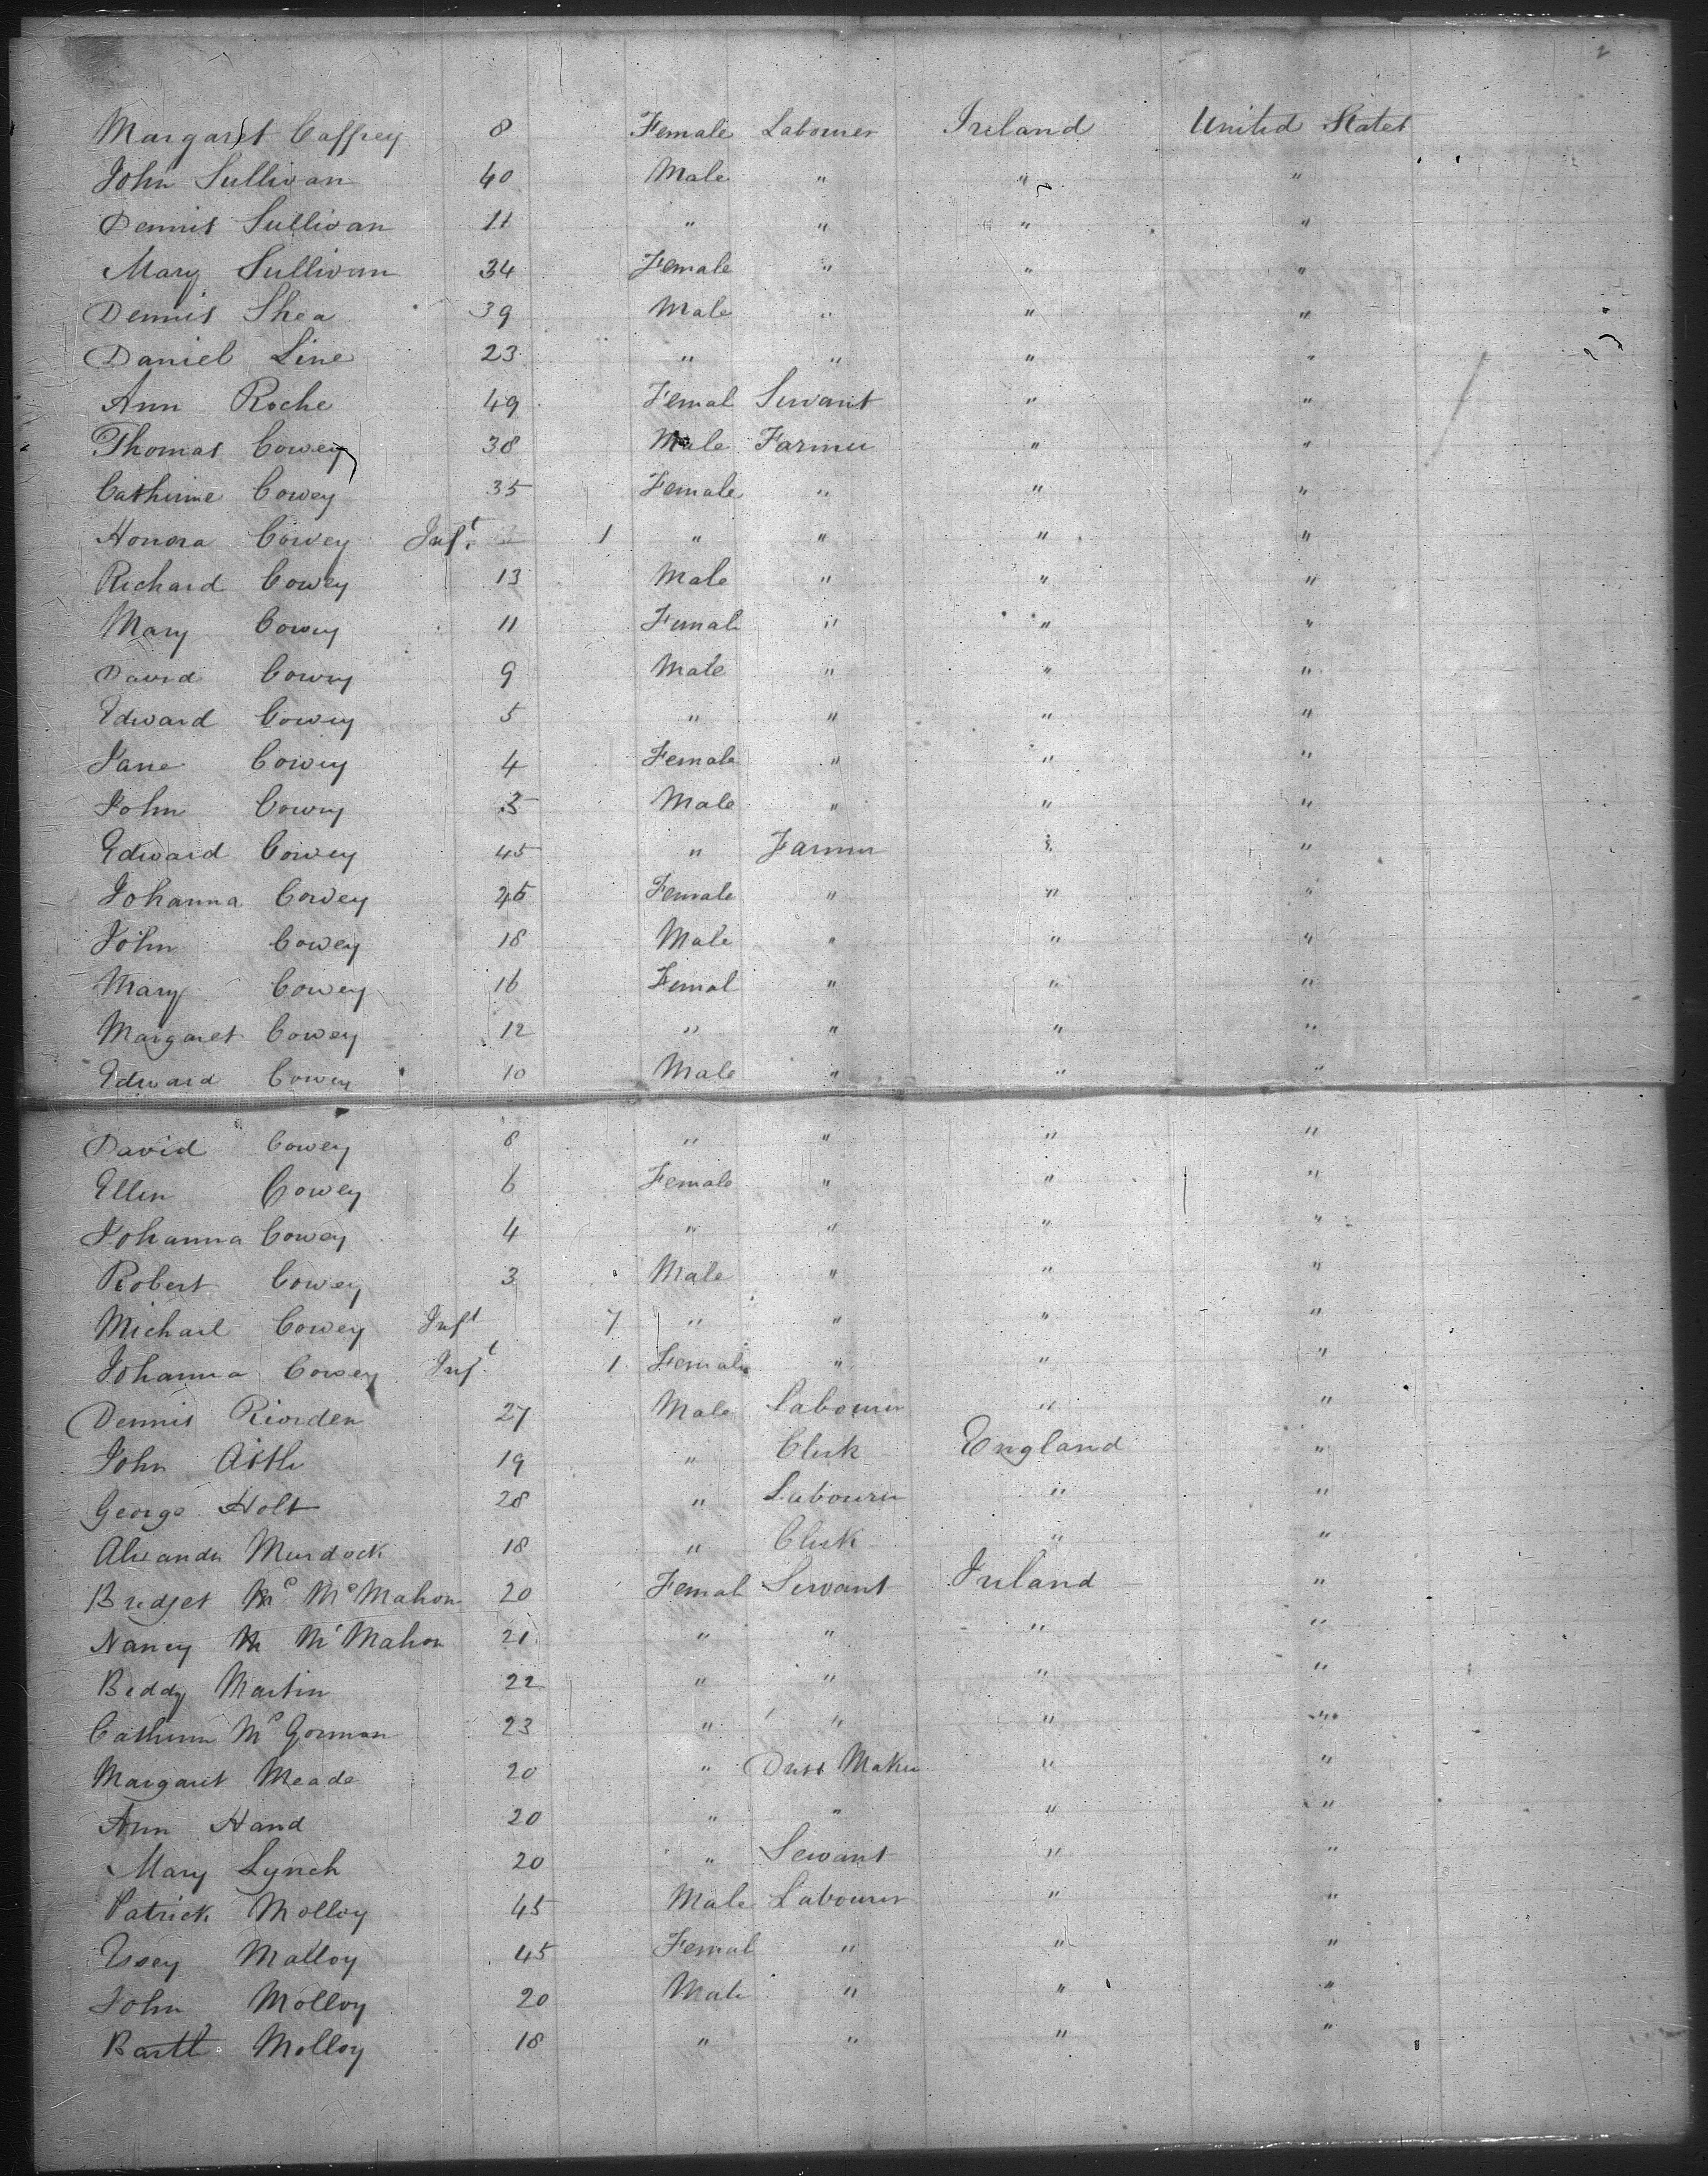 Margaret Caffrey 8 Female Labourer Ireland United States
John Sullivan 40 Male " " "
Dennis Sullivan 11 " " " "
Mary Sullivan 34 Female " " "
Dennis Shea 39 Male " " "
Daniel Line 23 " " " "
Ann Roche 49 Femal Servant " "
Thomas Cowey 38 Male Farmer " "
Catherine Cowey 35 Female " " "
Honora Cowey Inft. 1 " " " "
Richard Cowey 13 Male " " "
Mary Cowey 11 Female " " "
David Cowey 9 Male " " "
Edward Cowey 5 " " " "
Jane Cowey 4 Female " " "
John Cowey 3 Male " " "
Edward Cowey 45 " Farmer " "
Johanna Cowey Female " " "
John Cowey 18 Male " " "
Mary Cowey 16 Femal " " "
Margaret Cowey 12 " " " "
Edward Cowey 10 Male " " "
David Cowey 8 " " " "
Ellen Cowey 6 Female " " "
Johanna Cowey 4 " " " "
Robert Cowey 3 Male " " "
Michael Cowey Inft 7 " " " "
Johanna Cowey Inft. 1 Female " " "
Dennis Riorden 27 Male Labourer " "
John 19 " Clerk England "
George Holt 28 " Labourer " "
Alexander Murdock 18 " Clerk " "
Bridget Mc McMahon 20 Female Servant Ireland "
Nancy M McMahon 21 " " " "
Biddy Martin 22 " " " "
Catherine McGorman 23 " " " "
Margaret Meade 20 " Dress Maker " "
Ann Hand 20 " " " "
Mary Lynch 20 " Servant " "
Patrick Molloy 45 Male Labourer " "
Malloy 45 Femal " " "
John Molloy 20 Male " " "
Bartt Molloy 18 " " " "